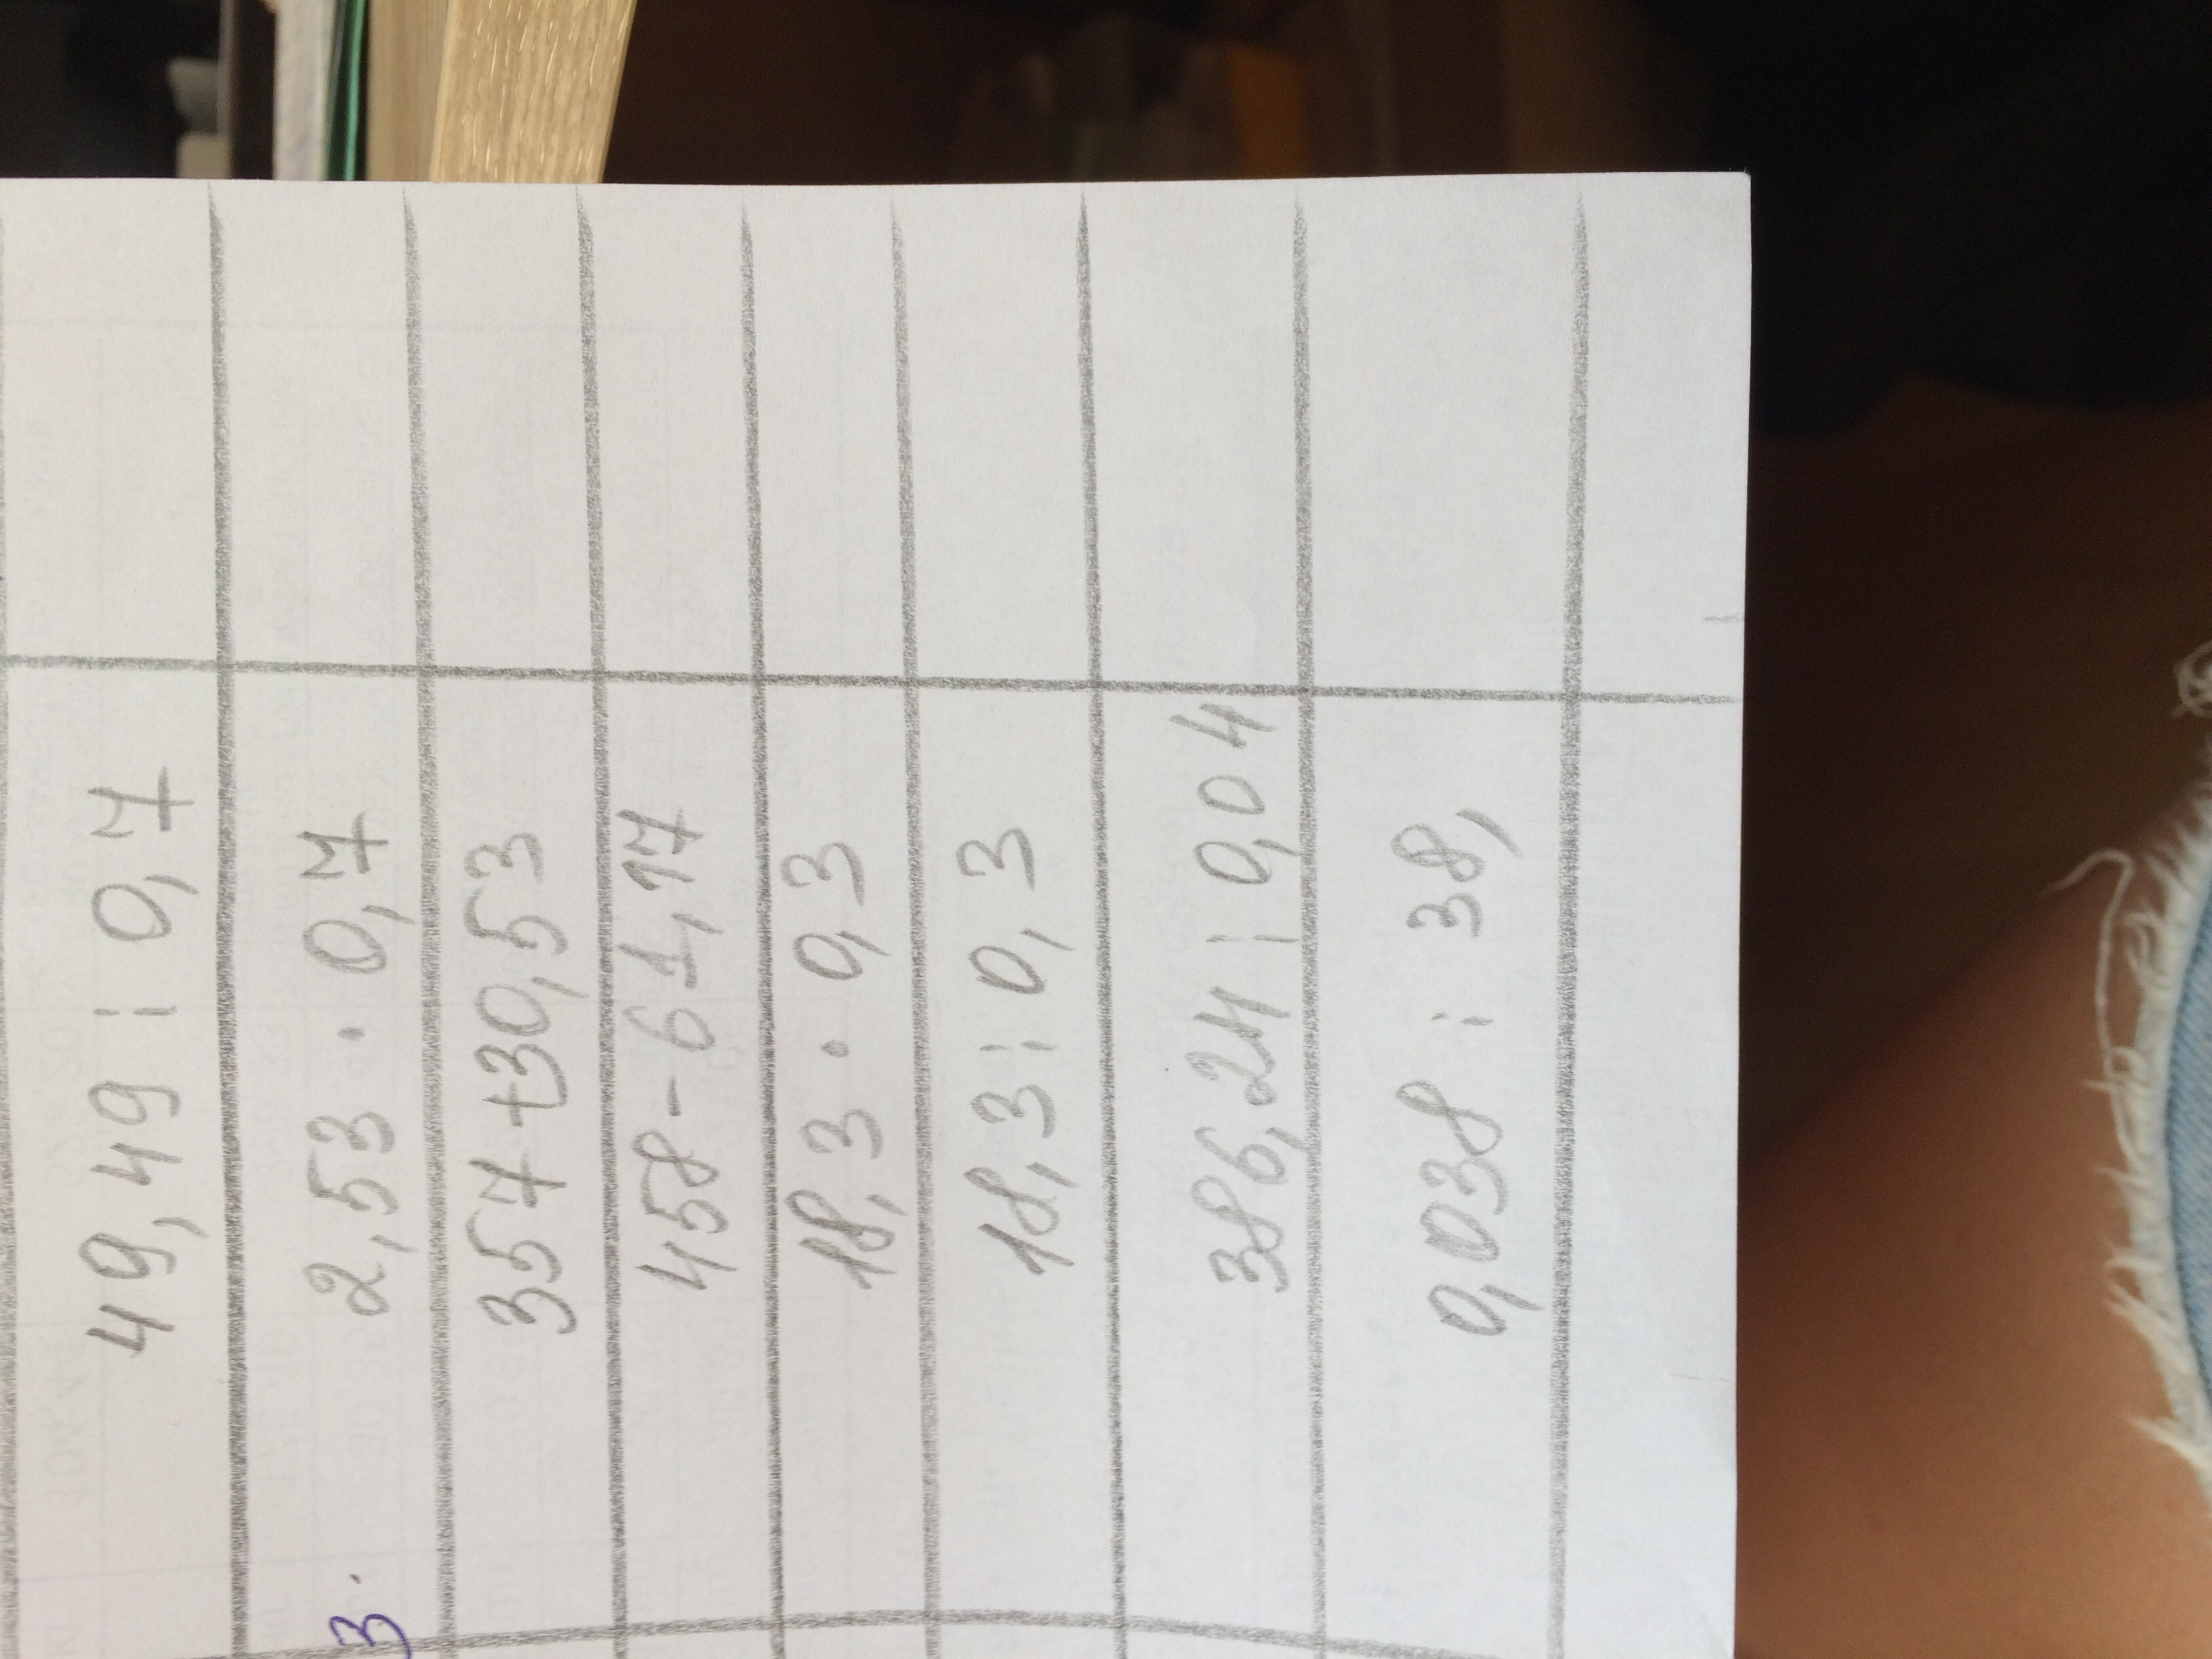 49,49 : 0,7
3. 2,53 · 0,7
357+30,53
458-61,17
18,3 · 0,3
18,3 : 0,3
386,24 : 0,04
0,038 : 38,